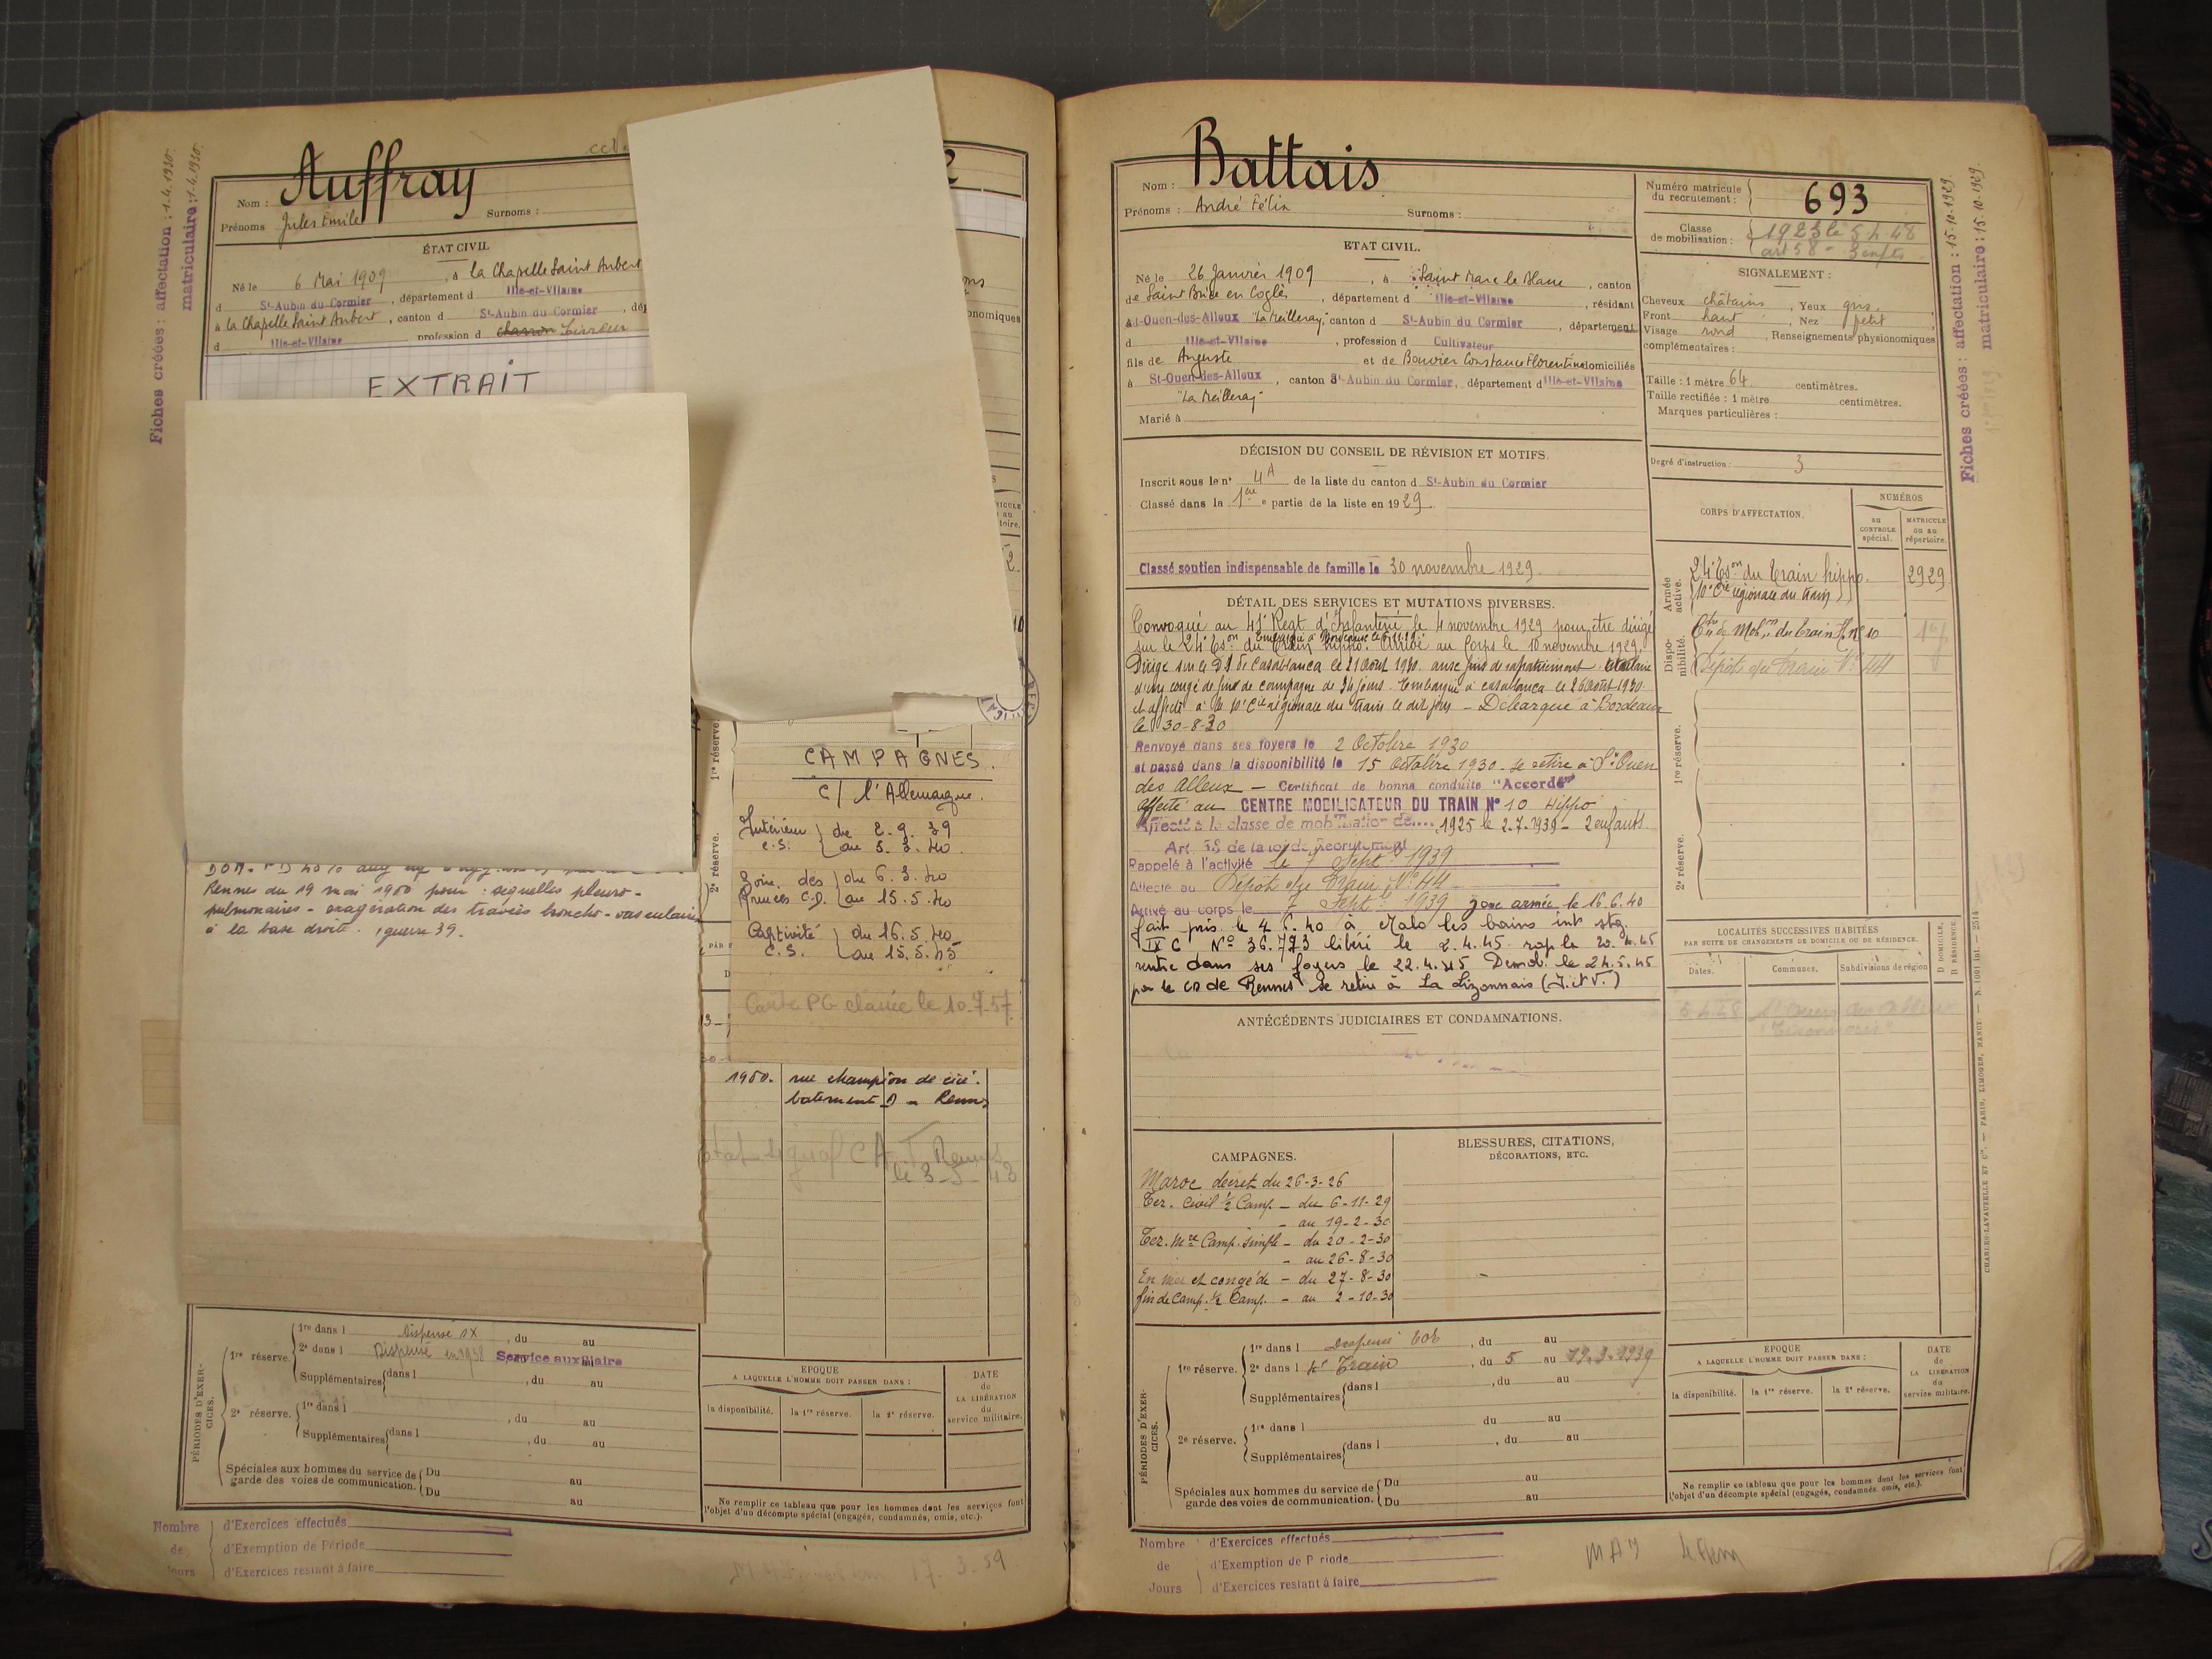 Fiches créées : affectation : 1.4.1930.
matriculaire : 1.4.1930.
Nom : Auffray
Prénoms Jules Emile Surnoms :
ÉTAT CIVIL
Né le 6 Mai 1909, à la Chapelle Saint Aubert
d St-Aubin du Cormier, département d Ille-et-Vilaine
à la Chapelle Saint Aubert, canton d St-Aubin du Cormier, dép
d Ille-et-Vilaine profession d charron
EXTRAIT
Rennes du 19 mai 1950 pour : sequelles pleuro-
pulmonaires - exagération des travées broncho-vasculaires
à la base droite. guerre 39.
1re réserve.
2e réserve.
CAMPAGNES.
C/ l'Allemagne.
Intérieur du 2.9.39
C.S. au 5.3.40.
Zone des du 6.3.40
Armées C.D. au 15.5.40
Captivité du 16.5.40
C.S. au 15.5.45
Carte PG classée le 10-7-57
1950. rue champion de cicé.
batiment D - Rennes
Rennes
le 3-5-43
PÉRIODES D'EXERCICES.
1re réserve. 1re dans l Dispensé, du au
2e dans l Dispensé en 1938 Service auxiliaire
Supplémentaires dans l , du au
2e réserve. 1re dans l , du au
Supplémentaires dans l , du au
Spéciales aux hommes du service de garde des voies de communication. Du au
Du au
EPOQUE
A LAQUELLE L'HOMME DOIT PASSER DANS :
la disponibilité. la 1re réserve. la 2e réserve.
DATE
de
LA LIBÉRATION
du
service militaire.
Ne remplir ce tableau que pour les hommes dont les services font
l'objet d'un décompte spécial (engagés, condamnés, omis, etc.).
Nombre d'Exercices effectués
de d'Exemption de Période
Jours d'Exercices restant à faire
17.3.59
Nom : Battais
Prénoms : André Félix Surnoms :
ETAT CIVIL.
Né le 26 Janvier 1909, à Saint Marc le Blanc, canton
de Saint Brice en Coglès, département d Ille-et-Vilaine, résidant
à St-Ouen-des-Alleux "La Meilleray", canton d St-Aubin du Cormier, département
d Ille-et-Vilaine, profession d Cultivateur
fils de Auguste et de Bouvier Constance Florentine domiciliés
à St-Ouen-des-Alleux, canton d St-Aubin du Cormier, département d Ille-et-Vilaine
"La Meilleray"
Marié à
DÉCISION DU CONSEIL DE RÉVISION ET MOTIFS.
Inscrit sous le n° 4A de la liste du canton d St-Aubin du Cormier
Classé dans la 1ère partie de la liste en 1929.
Classé soutien indispensable de famille le 30 novembre 1929.
DÉTAIL DES SERVICES ET MUTATIONS DIVERSES.
Convoqué au 41e Regt d'Infanterie le 4 novembre 1929 pour être dirigé
Embarqué à le 6.11.29.
sur le 24e Eson du Train hippo. Arrivé au Corps le 10 novembre 1929.
Dirigé sur le D.I. de Casablanca le 21 Août 1930 aux fins de rapatriement titulaire
d'un congé de fin de campagne de 34 jours. Embarqué à Casablanca le 26 août 1930.
et affecté à la 10e Cie régionale du train le dit jour - Débarqué à Bordeaux
le 30-8-30
Renvoyé dans ses foyers le 2 Octobre 1930
et passé dans la disponibilité le 15 Octobre 1930 - se retire à St Ouen
des Alleux - Certificat de bonne conduite "Accordé"
Affecté au CENTRE MOBILISATEUR DU TRAIN N° 10 Hippo
Affecté à la classe de mobilisation de 1925 le 2.7.1939 - 2 enfants
Art. 58 de la loi de Recrutement
Rappelé à l'activité le 7 Sept. 1939
Affecté au Dépôt du Train N° 44
Arrivé au corps le 7 Sept. 1939 zone armée le 16.6.40
fait pris. le 4.6.40 à Malo les bains int stg.
IX C N° 36.773 libéré le 2.4.45 rap le 20.4.45
rentré dans ses foyers le 22.4.45 Demob. le 24.5.45
par le CD de Rennes se retire à La Lizonnais (I. et V.)
ANTÉCÉDENTS JUDICIAIRES ET CONDAMNATIONS.
CAMPAGNES.
Maroc décret du 26-3-26
Ter. Civil ½ Camp. - du 6-11-29
- au 19-2-30
Ter. Mre Camp. simple - du 20-2-30
- au 26-8-30
En mer et congé de - du 27-8-30
fin de camp. ½ Camp. - au 2-10-30
BLESSURES, CITATIONS,
DÉCORATIONS, ETC.
PÉRIODES D'EXERCICES.
1re réserve. 1re dans l Dispensé, du au
2e dans l Train, du 5 au 19.3.1939
Supplémentaires dans l , du au
2e réserve. 1re dans l du au
Supplémentaires dans l , du au
Spéciales aux hommes du service de garde des voies de communication. Du au
Du au
Nombre d'Exercices effectués
de d'Exemption de Période
Jours d'Exercices restant à faire
Numéro matricule
du recrutement : 693
Classe
de mobilisation : 1923 le 5.4.48
art 58 - 3 enfts
SIGNALEMENT :
Cheveux châtains, Yeux gris,
Front haut, Nez petit
Visage rond, Renseignements physionomiques
complémentaires :
Taille : 1 mètre 64 centimètres.
Taille rectifiée : 1 mètre centimètres.
Marques particulières :
Degré d'instruction : 3
CORPS D'AFFECTATION.
NUMÉROS
au CONTROLE spécial.
MATRICULE ou au répertoire.
Armée active.
24e Eson du Train hippo. 2929
(10e Cie régionale du train)
Disponibilité.
Ctre de Mobon du train H. n° 10
Dépôt du Train N° 44
1re réserve.
2e réserve.
LOCALITÉS SUCCESSIVES HABITÉES
PAR SUITE DE CHANGEMENTS DE DOMICILE OU DE RÉSIDENCE.
Dates. Communes. Subdivisions de région
D DOMICILE, R RÉSIDENCE
5.4.48 St Ouen des Alleux
EPOQUE
A LAQUELLE L'HOMME DOIT PASSER DANS :
la disponibilité. la 1re réserve. la 2e réserve.
DATE
de
LA LIBÉRATION
du
service militaire.
Ne remplir ce tableau que pour les hommes dont les services font
l'objet d'un décompte spécial (engagés, condamnés, omis, etc.).
Fiches créées : affectation : 15.10.1929.
matriculaire : 15.10.1929.
CHARLES-LAVAUZELLE ET Cie. — PARIS, LIMOGES, NANCY